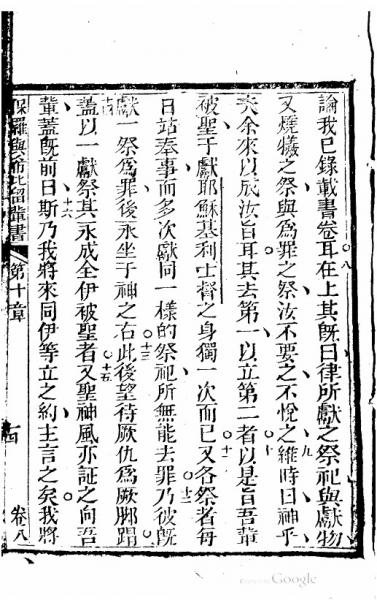 論我已錄載書卷耳〇八在上其既曰律所獻之祭祀與獻物
又燒犧之祭與為罪之祭汝不要之不悅之九維時曰神乎
夫余來以成汝旨耳其去第一以立第二者〇十以是旨吾輩
被聖于獻耶穌基利士督之身獨一次而已〇十一又各祭者每
日站奉事而多次獻同一樣的祭祀所無能去罪〇十二乃彼既
獻一祭為罪後永坐于神之右〇十三此後望待厥仇為厥腳踏
十四蓋以一獻祭其永成全伊被聖者〇十五又聖神風亦証之向吾
輩蓋既前曰十六斯乃我將來同伊等立之約主言之矣我將
保羅與希比留輩書 第十章 卷八
Google